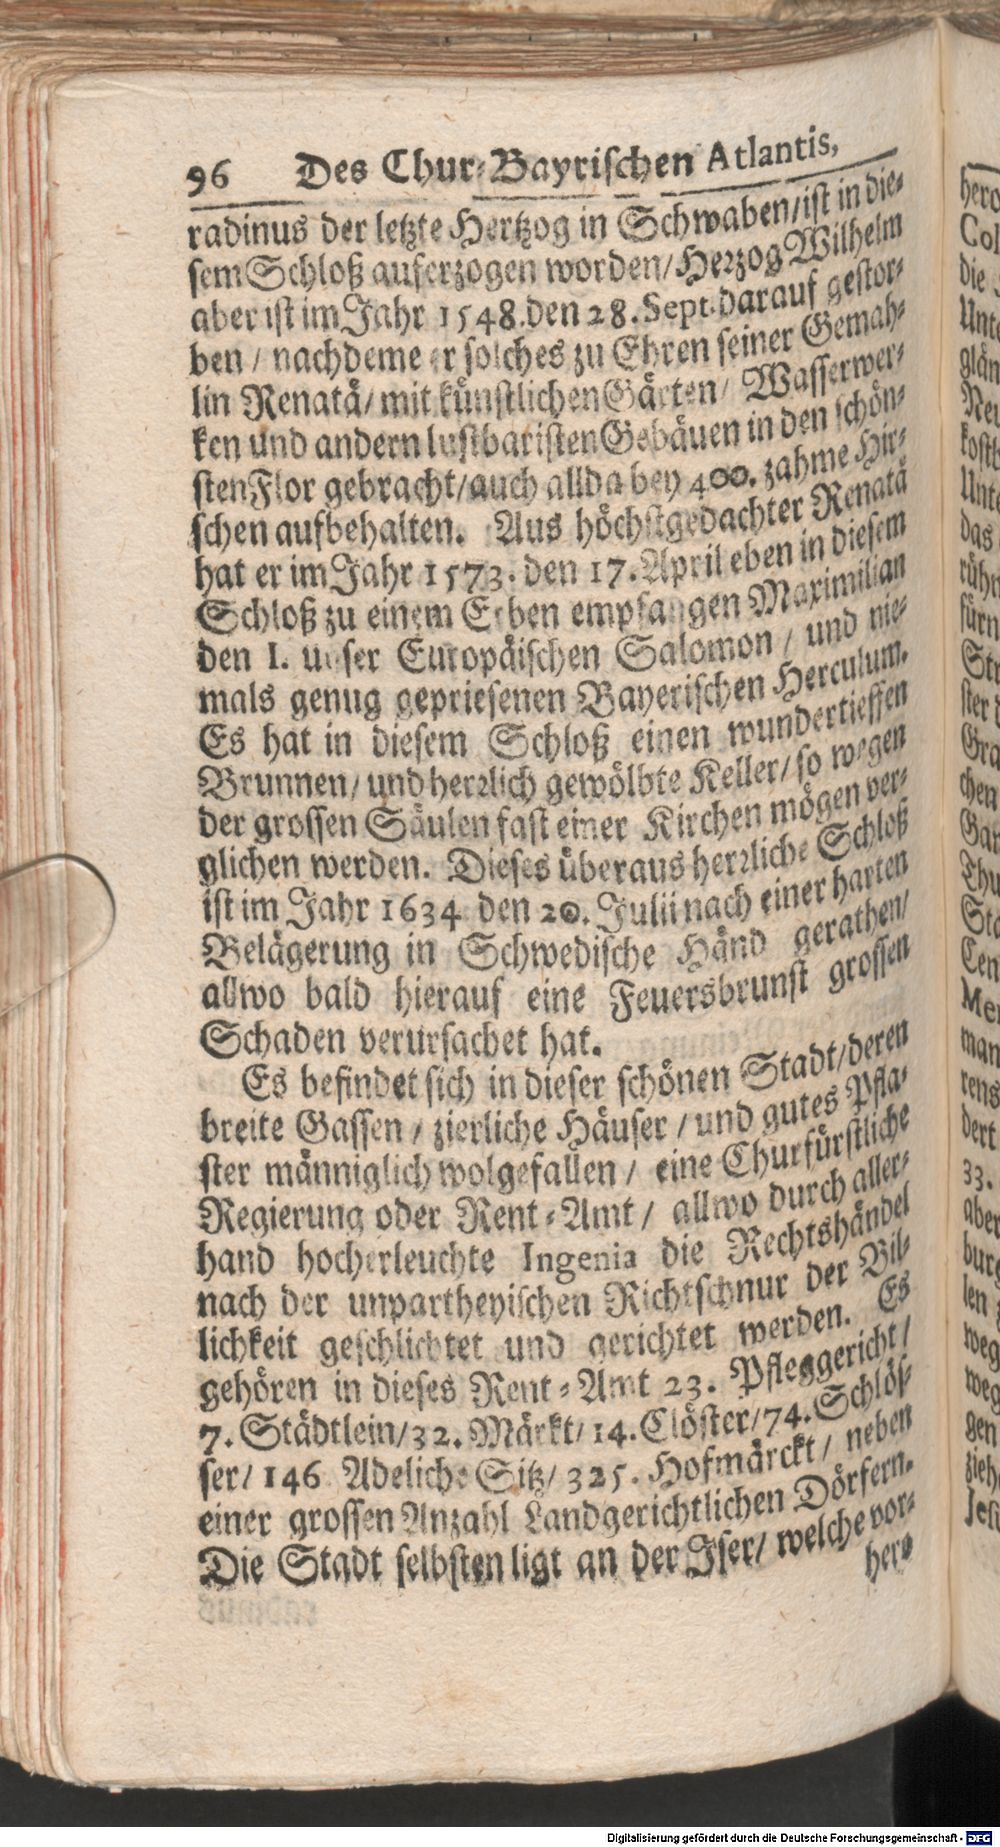 96 Des Chur-Bayrischen Atlantis,
radinus der letzte Hertzog in Schwaben/ist in die-
sem Schloß auferzogen worden/Herzog Wilhelm
aber ist im Jahr 1548.den 28.Sept.darauf gestor-
ben / nachdeme er solches zu Ehren seiner Gemah-
lin Renatä/mit künstlichen Gärten/ Wasserwer-
ken und andern lustbaristen Gebäuen in den schön-
sten Flor gebracht/auch allda bey 400. zahme Hir-
schen aufbehalten. Aus höchstgedachter Renatä
hat er im Jahr 1573. den 17. April eben in diesem
Schloß zu einem Erben empfangen Maximilian
den I. unser Europäischen Salomon / und nie-
mals genug gepriesenen Bayerischen Herculum.
Es hat in diesem Schloß einen wundertieffen
Brunnen/ und herrlich gewölbte Keller/ so wegen
der grossen Säulen fast einer Kirchen mögen ver-
glichen werden. Dieses überaus herrliche Schloß
ist im Jahr 1634 den 20. Julii nach einer harten
Belägerung in Schwedische Händ gerathen/
allwo bald hierauf eine Feuersbrunst grossen
Schaden verursachet hat.
Es befindet sich in dieser schönen Stadt/deren
breite Gassen / zierliche Häuser / und gutes Pfla-
ster männiglich wolgefallen / eine Churfürstliche
Regierung oder Rent-Amt / allwo durch aller-
hand hocherleuchte Ingenia die Rechtshändel
nach der unpartheyischen Richtschnur der Bil-
lichkeit geschlichtet und gerichtet werden. Es
gehören in dieses Rent-Amt 23. Pfleggericht/
7. Städtlein/32. Märkt/ 14. Clöster/74. Schlös-
ser/ 146 Adeliche Sitz/ 325. Hofmärckt/ neben
einer grossen Anzahl Landgerichtlichen Dörfern.
Die Stadt selbsten ligt an der Iser/ welche vor-
her-
Digitalisierung gefördert durch die Deutsche Forschungsgemeinschaft - DFG